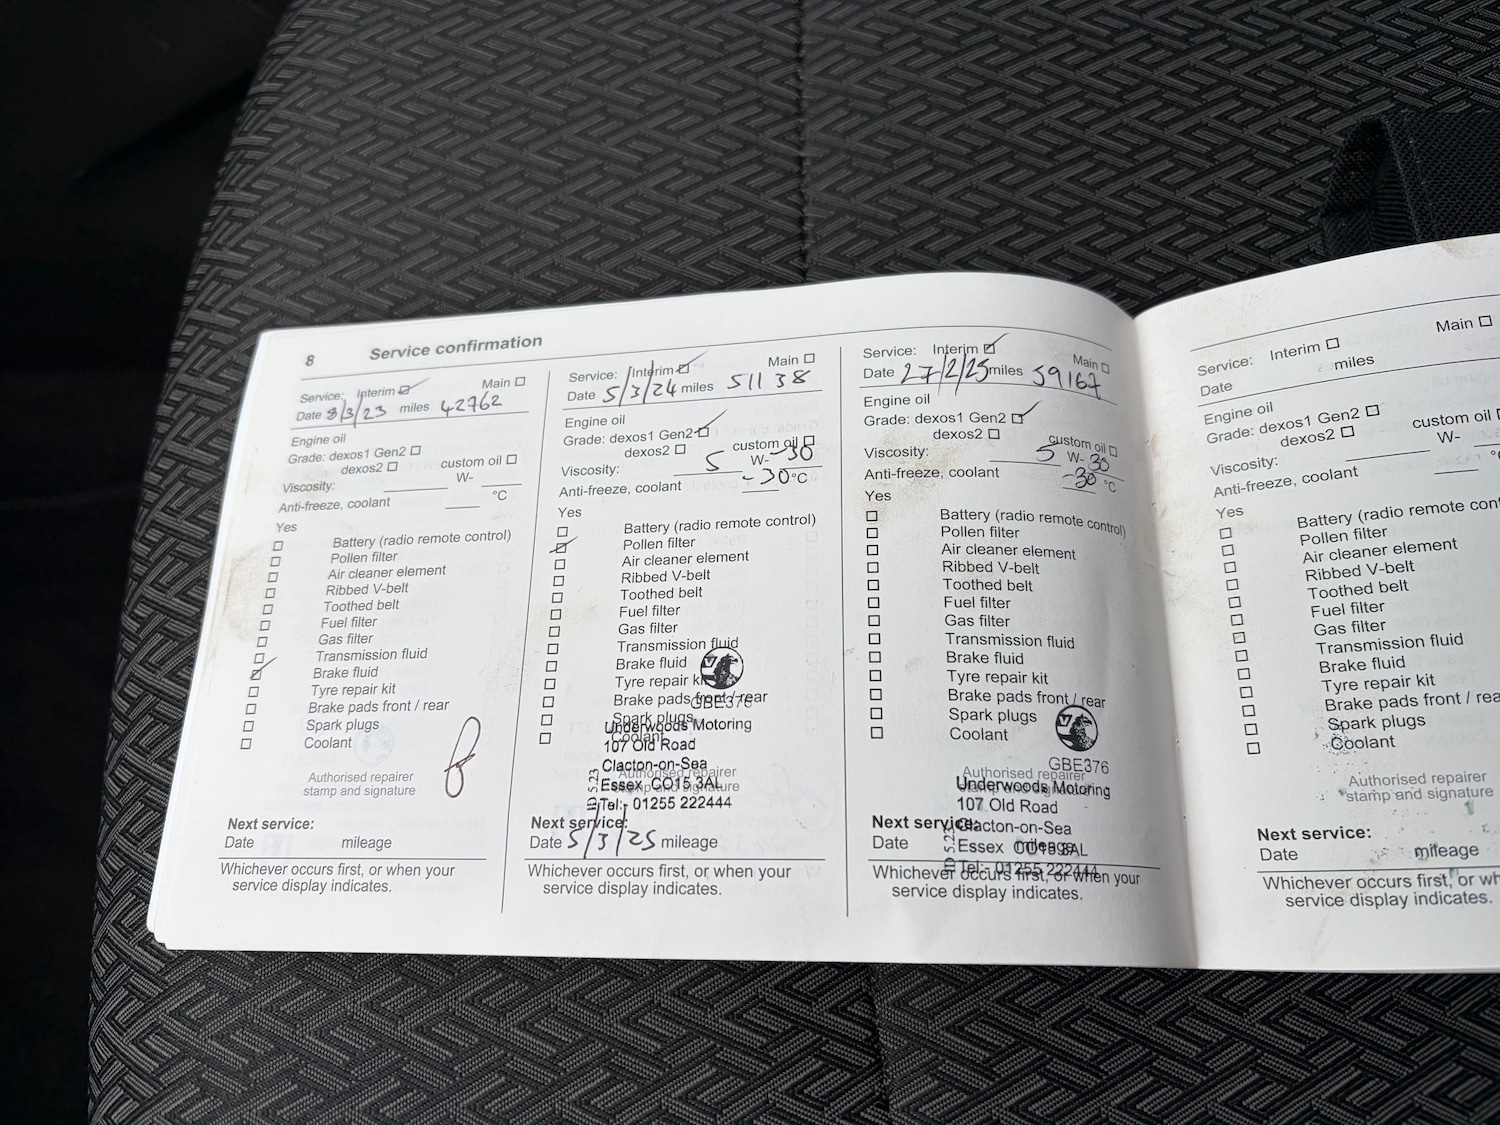 8 Service confirmation
Service: Interim Main
Date 8/3/23 miles 42762
Engine oil
Grade: dexos1 Gen2
dexos2 custom oil
Viscosity: W-
Anti-freeze, coolant °C
Yes
Battery (radio remote control)
Pollen filter
Air cleaner element
Ribbed V-belt
Toothed belt
Fuel filter
Gas filter
Transmission fluid
Brake fluid
Tyre repair kit
Brake pads front / rear
Spark plugs
Coolant
Authorised repairer
stamp and signature
Next service:
Date mileage
Whichever occurs first, or when your
service display indicates.
Service: Interim Main
Date 5/3/24 miles 51138
Engine oil
Grade: dexos1 Gen2
dexos2 custom oil
Viscosity: 5 W- 30
Anti-freeze, coolant -30 °C
Yes
Battery (radio remote control)
Pollen filter
Air cleaner element
Ribbed V-belt
Toothed belt
Fuel filter
Gas filter
Transmission fluid
Brake fluid
Tyre repair kit
Brake pads front / rear
GBE376
Spark plugs
Underwoods Motoring
Coolant
107 Old Road
Clacton-on-Sea
Authorised repairer
Essex CO15 3AL
stamp and signature
Tel:- 01255 222444
Next service:
Date 5/3/25 mileage
Whichever occurs first, or when your
service display indicates.
Service: Interim Main
Date 27/2/25 miles 59167
Engine oil
Grade: dexos1 Gen2
dexos2 custom oil
Viscosity: 5 W- 30
Anti-freeze, coolant -30 °C
Yes
Battery (radio remote control)
Pollen filter
Air cleaner element
Ribbed V-belt
Toothed belt
Fuel filter
Gas filter
Transmission fluid
Brake fluid
Tyre repair kit
Brake pads front / rear
Spark plugs
Coolant
GBE376
Authorised repairer
stamp and signature
Underwoods Motoring
107 Old Road
Next service:
Clacton-on-Sea
Date mileage
Essex CO15 3AL
Tel:- 01255 222444
Whichever occurs first, or when your
service display indicates.
Service: Interim Main
Date miles
Engine oil
Grade: dexos1 Gen2
dexos2 custom oil
Viscosity: W-
Anti-freeze, coolant
Yes
Battery (radio remote
Pollen filter
Air cleaner element
Ribbed V-belt
Toothed belt
Fuel filter
Gas filter
Transmission fluid
Brake fluid
Tyre repair kit
Brake pads front /
Spark plugs
Coolant
Authorised repairer
stamp and signature
Next service:
Date mileage
Whichever occurs first, or
service display indicates.